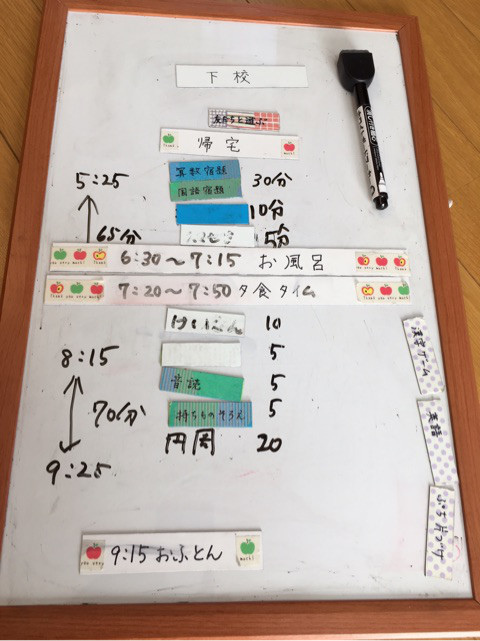 下校
友だちと遊ぶ
帰宅
5:25
算数宿題
国語宿題 30分
10分
65分 5分
6:30〜7:15 お風呂
7:20〜7:50 夕食タイム
10
8:15 5
音読 5
70分 持ちものそろえ 5
9:25 20
9:15 おふとん
漢字ゲーム
英語